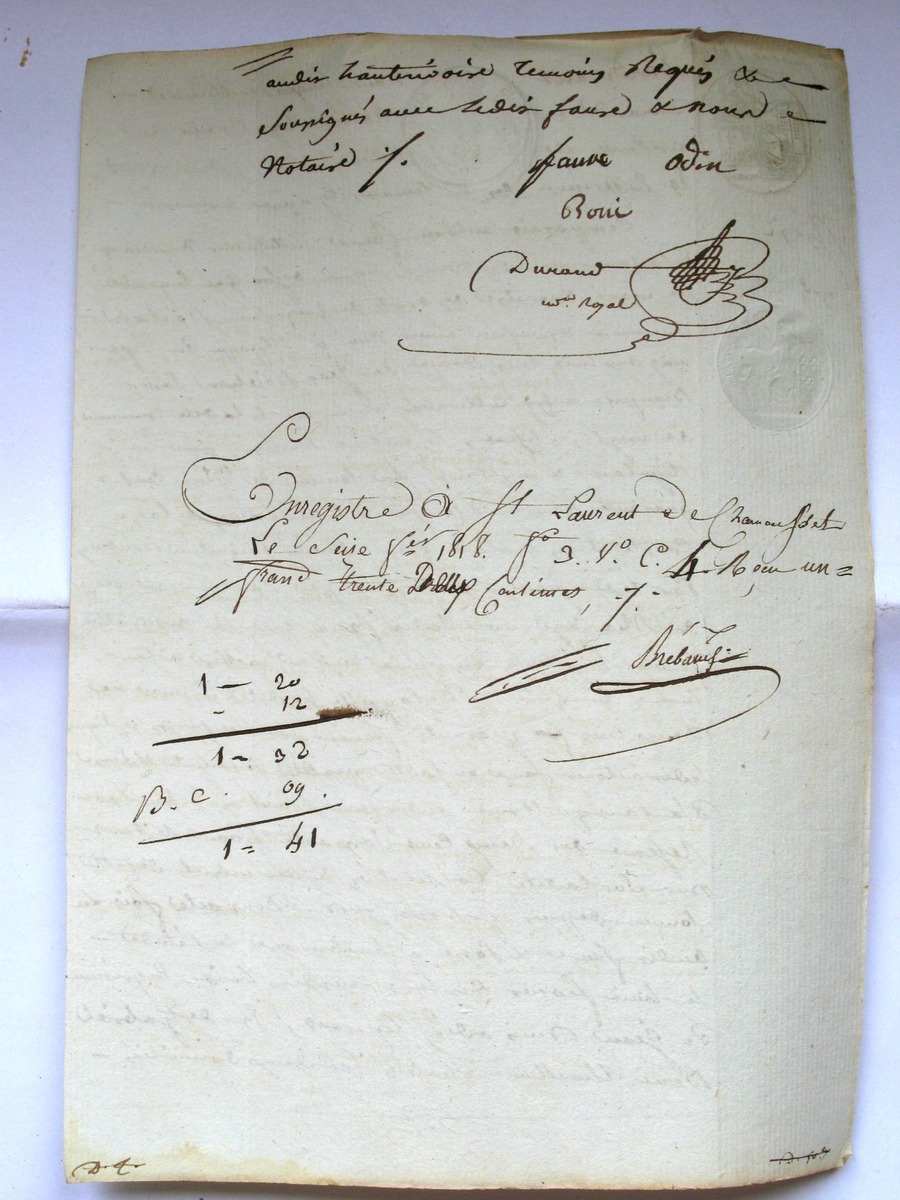 audit hauterivoire temoins Requis &
Soussignés avec ledit faure & nous
Notaire /.
faure Odin
Boni
Durand
nre. Royal
Enregistré à St Laurent de Chamousset
Le Seize fer. 1818. fo 3. Vo. C. 4. Reçu un=
franc trente Deux Centimes, -/-
1 - 20
- 12
1 - 32
B. C. 09.
1 = 41